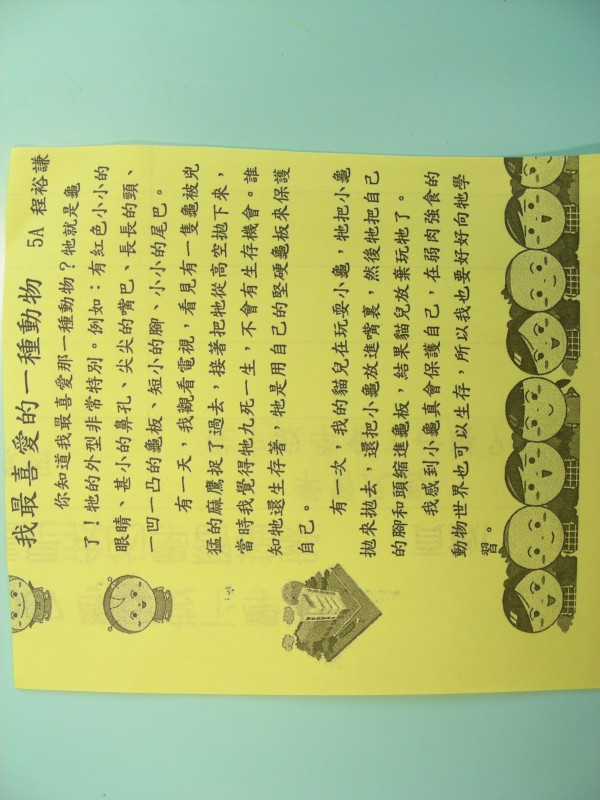 我最喜愛的一種動物 5A 程裕謙
你知道我最喜愛那一種動物？牠就是龜
了！牠的外型非常特別。例如：有紅色小小的
眼睛、甚小的鼻孔、尖尖的嘴巴、長長的頸、
一凹一凸的龜板、短小的腳，小小的尾巴。
有一天，我觀看電視，看見有一隻龜被兇
猛的麻鷹捉了過去，接著把牠從高空拋下來，
當時我覺得牠九死一生，不會有生存機會。誰
知牠還生存著，牠是用自己的堅硬龜板來保護
自己。
有一次，我的貓兒在玩耍小龜，牠把小龜
拋來拋去，還把小龜放進嘴裏，然後牠把自己
的腳和頭縮進龜板，結果貓兒放棄玩牠了。
我感到小龜真會保護自己，在弱肉強食的
動物世界也可以生存，所以我也要好好向牠學
習。